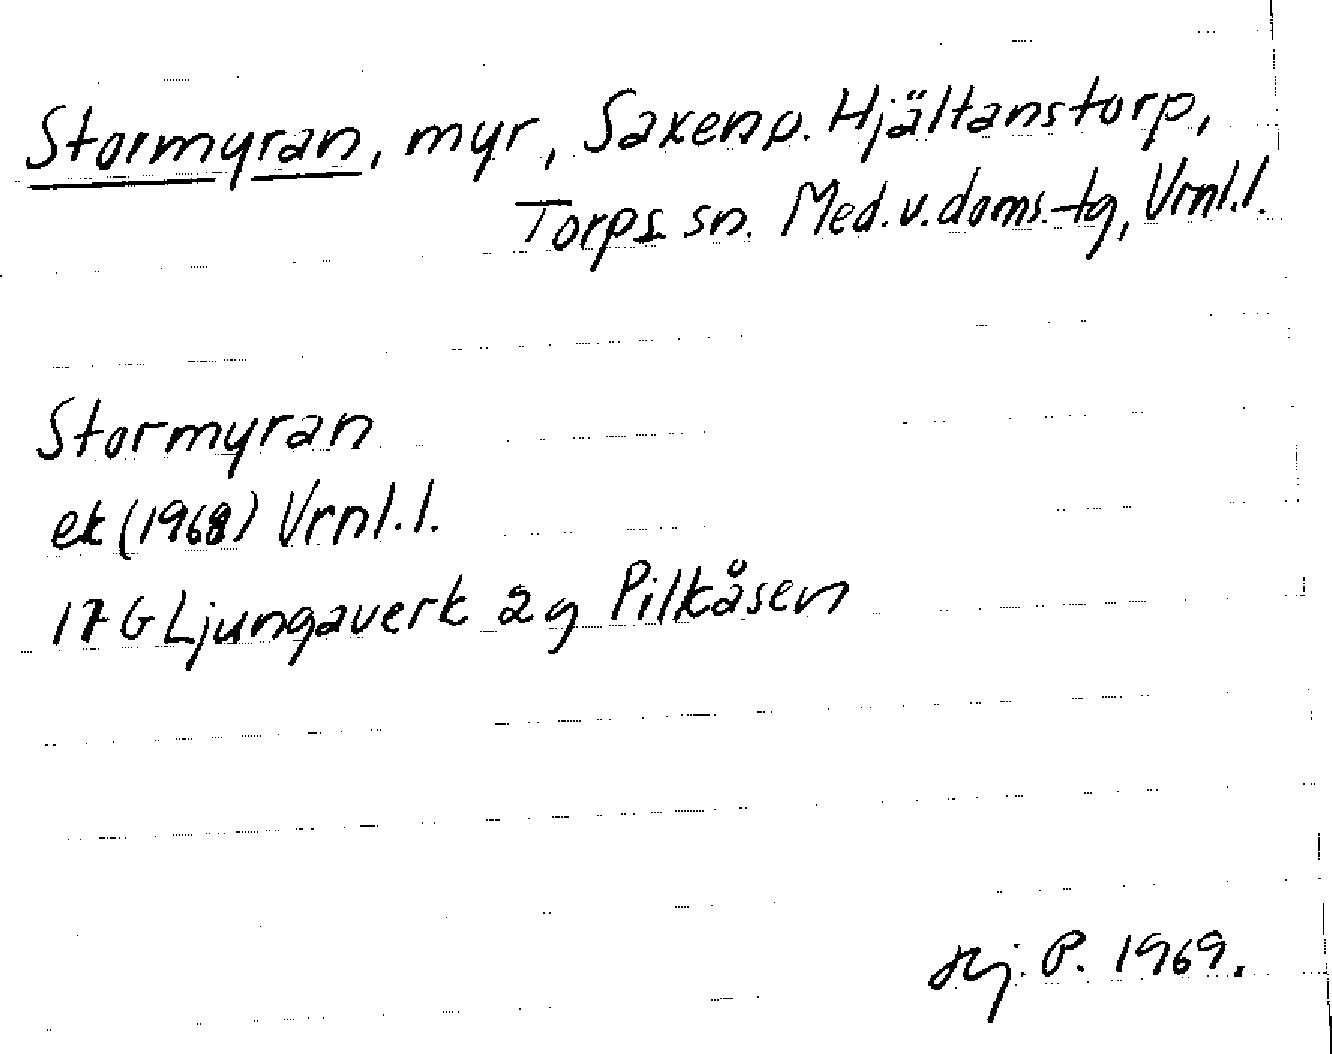 Stormyran, myr, Saxen o. Hjältanstorp,
Torps sn. Med.v.doms.tg, Vrnl.l.
Stormyran
ek (1968) Vrnl.l.
17G Ljungaverk 2g Pilkåsen
Hj. P. 1969.